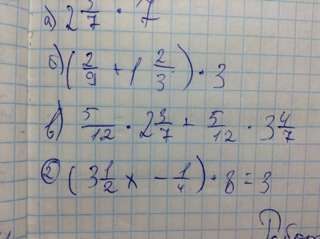 а) 2 3/7 · 7
б) (2/9 + 1 2/3) · 3
в) 5/12 · 2 3/7 + 5/12 · 3 4/7
② (3 1/2 x - 1/4) · 8 = 3